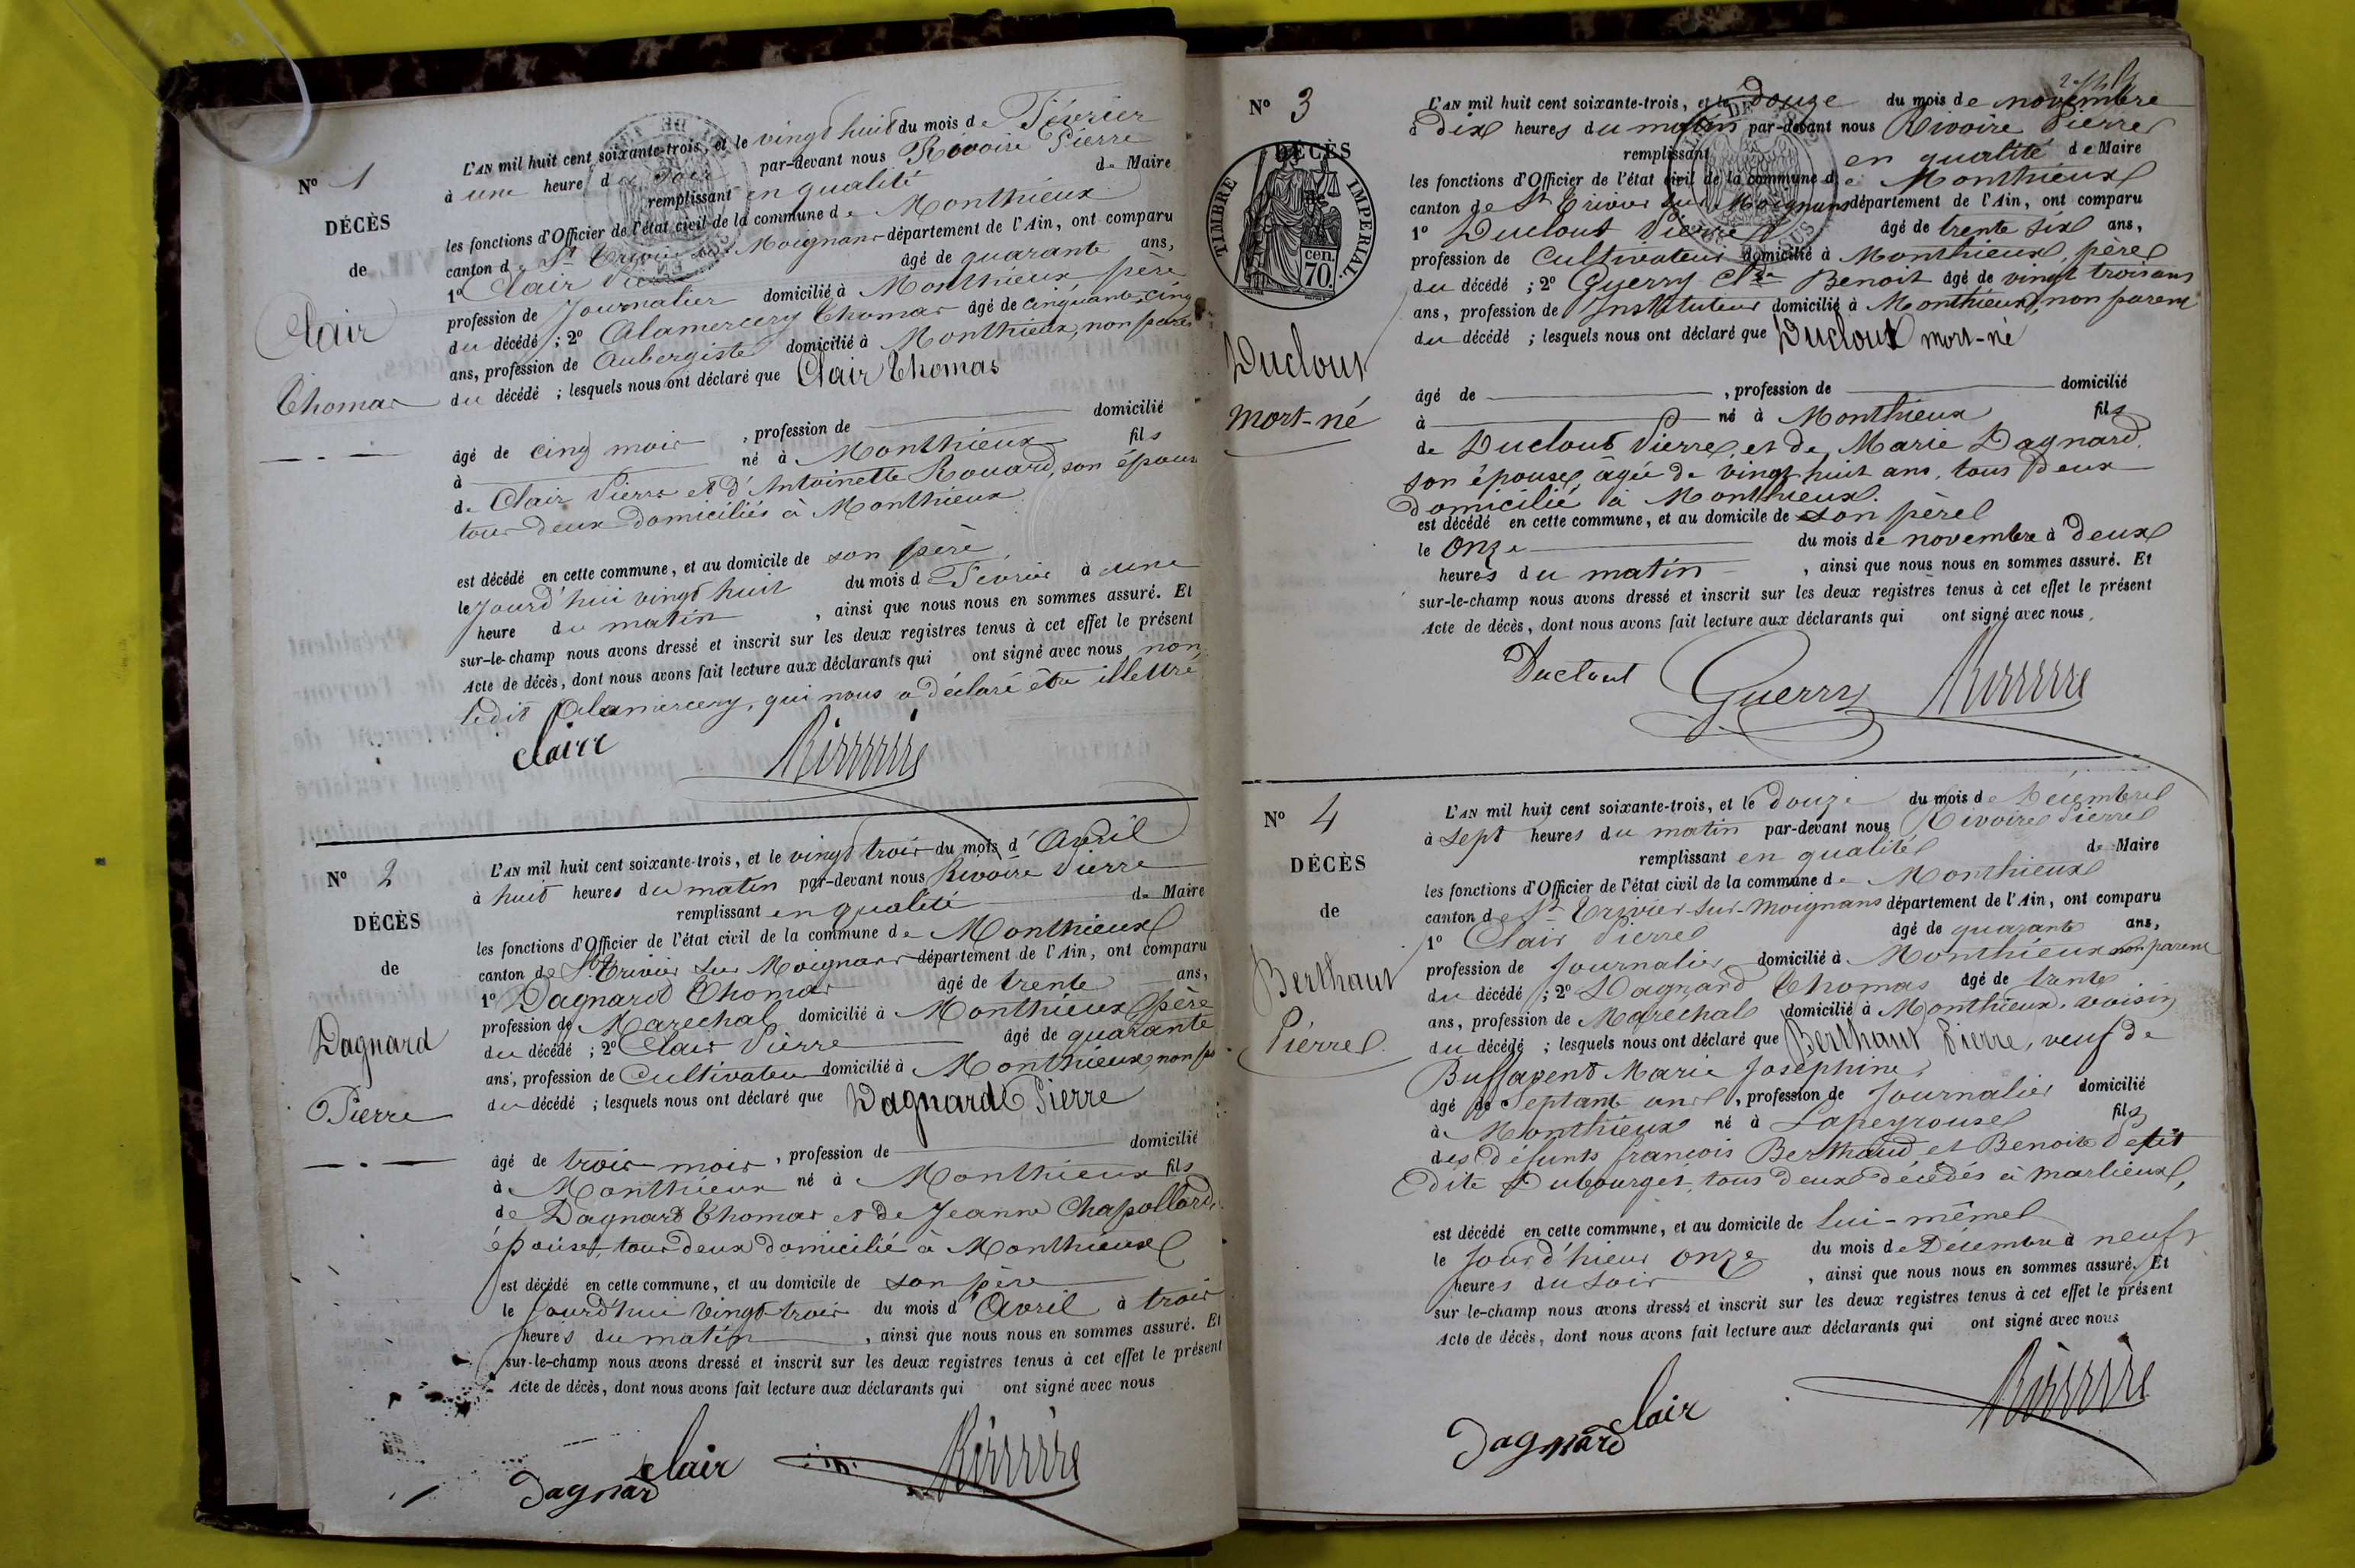 N° 1
DÉCÈS
de
Clair
Thomas
L'AN mil huit cent soixante-trois, et le vingt huit du mois de Février
à une heure du soir par-devant nous Rivoire Pierre
remplissant en qualité de Maire
les fonctions d'Officier de l'état civil de la commune de Monthieux
canton de St Trivier sur Moignans département de l'Ain, ont comparu
1° Clair Pierre âgé de quarante ans,
profession de Journalier domicilié à Monthieux père
du décédé ; 2° Alamercery Thomas âgé de cinquante cinq
ans, profession de Aubergiste domicilié à Monthieux, non paren
du décédé ; lesquels nous ont déclaré que Clair Thomas
âgé de cinq mois , profession de domicilié
à né à Monthieux fils
de Clair Pierre et d'Antoinette Rouard, son épouse
tous deux domiciliés à Monthieux
est décédé en cette commune, et au domicile de son père
le Jourd'hui vingt huit du mois d Fevrier à une
heure du matin , ainsi que nous nous en sommes assuré. Et
sur-le-champ nous avons dressé et inscrit sur les deux registres tenus à cet effet le présent
Acte de décès, dont nous avons fait lecture aux déclarants qui ont signé avec nous, non
ledit Alamercery, qui nous a déclaré être illettré
Claire Rivoire
N° 2
DÉCÈS
de
Dagnard
Pierre
L'AN mil huit cent soixante-trois, et le vingt trois du mois d'Avril
à huit heures du matin par-devant nous Rivoire Pierre
remplissant en qualité de Maire
les fonctions d'Officier de l'état civil de la commune de Monthieux
canton de St Trivier sur Moignans département de l'Ain, ont comparu
1° Dagnard Thomas âgé de trente ans,
profession de Marechal domicilié à Monthieux père
du décédé ; 2° Clair Pierre âgé de quarante
ans, profession de Cultivateur domicilié à Monthieux, non pa
du décédé ; lesquels nous ont déclaré que Dagnard Pierre
âgé de trois mois , profession de domicilié
à Monthieux né à Monthieux fils
de Dagnard Thomas et de Jeanne Chapollard,
épouse, tous deux domicilié à Monthieux
est décédé en cette commune, et au domicile de son père
le Jourd'hui vingt trois du mois d'Avril à trois
heures du matin , ainsi que nous nous en sommes assuré. Et
sur-le-champ nous avons dressé et inscrit sur les deux registres tenus à cet effet le présent
Acte de décès, dont nous avons fait lecture aux déclarants qui ont signé avec nous
Dagnard Clair Rivoire
N° 3
DÉCÈS
de
TIMBRE IMPÉRIAL
70 cen.
Duclout
mort-né
L'AN mil huit cent soixante-trois, et le douze du mois de novembre
à dix heures du matin par-devant nous Rivoire Pierre
remplissant en qualité de Maire
les fonctions d'Officier de l'état civil de la commune de Monthieux
canton de St Trivier sur Moignans département de l'Ain, ont comparu
1° Duclout Pierre âgé de trente six ans,
profession de Cultivateur domicilié à Monthieux, père
du décédé ; 2° Guerry Cde Benoit âgé de vingt trois ans
ans, profession de Instituteur domicilié à Monthieux, non parent
du décédé ; lesquels nous ont déclaré que Duclout mort-né
âgé de , profession de domicilié
à né à Monthieux fils
de Duclout Pierre, et de Marie Dagnard
son épouse, âgée de vingt huit ans, tous deux
domicilié à Monthieux.
est décédé en cette commune, et au domicile de son père
le onze du mois de novembre à deux
heures du matin , ainsi que nous nous en sommes assuré. Et
sur-le-champ nous avons dressé et inscrit sur les deux registres tenus à cet effet le présent
Acte de décès, dont nous avons fait lecture aux déclarants qui ont signé avec nous.
Duclout Guerry Rivoire
N° 4
DÉCÈS
de
Berthaut
Pierre
L'AN mil huit cent soixante-trois, et le douze du mois de Décembre
à sept heures du matin par-devant nous Rivoire Pierre
remplissant en qualité de Maire
les fonctions d'Officier de l'état civil de la commune de Monthieux
canton de St Trivier sur-Moignans département de l'Ain, ont comparu
1° Clair Pierre âgé de quarante ans,
profession de Journalier domicilié à Monthieux non parent
du décédé ; 2° Dagnard Thomas âgé de trente
ans, profession de Marechal domicilié à Monthieux. voisin
du décédé ; lesquels nous ont déclaré que Berthaut Pierre, veuf de
Marie Josephine,
âgé de Septante ans , profession de Journalier domicilié
à Monthieux né à Lapeyrouse fils
des défunts francois Berthaud et Benoite Petit
dite Dubourget, tous deux décédés à Marlieux,
est décédé en cette commune, et au domicile de lui-même
le Jour d'hier onze du mois de Décembre à neuf
heures du soir , ainsi que nous nous en sommes assuré. Et
sur-le-champ nous avons dressé et inscrit sur les deux registres tenus à cet effet le présent
Acte de décès, dont nous avons fait lecture aux déclarants qui ont signé avec nous
Dagnard Clair Rivoire